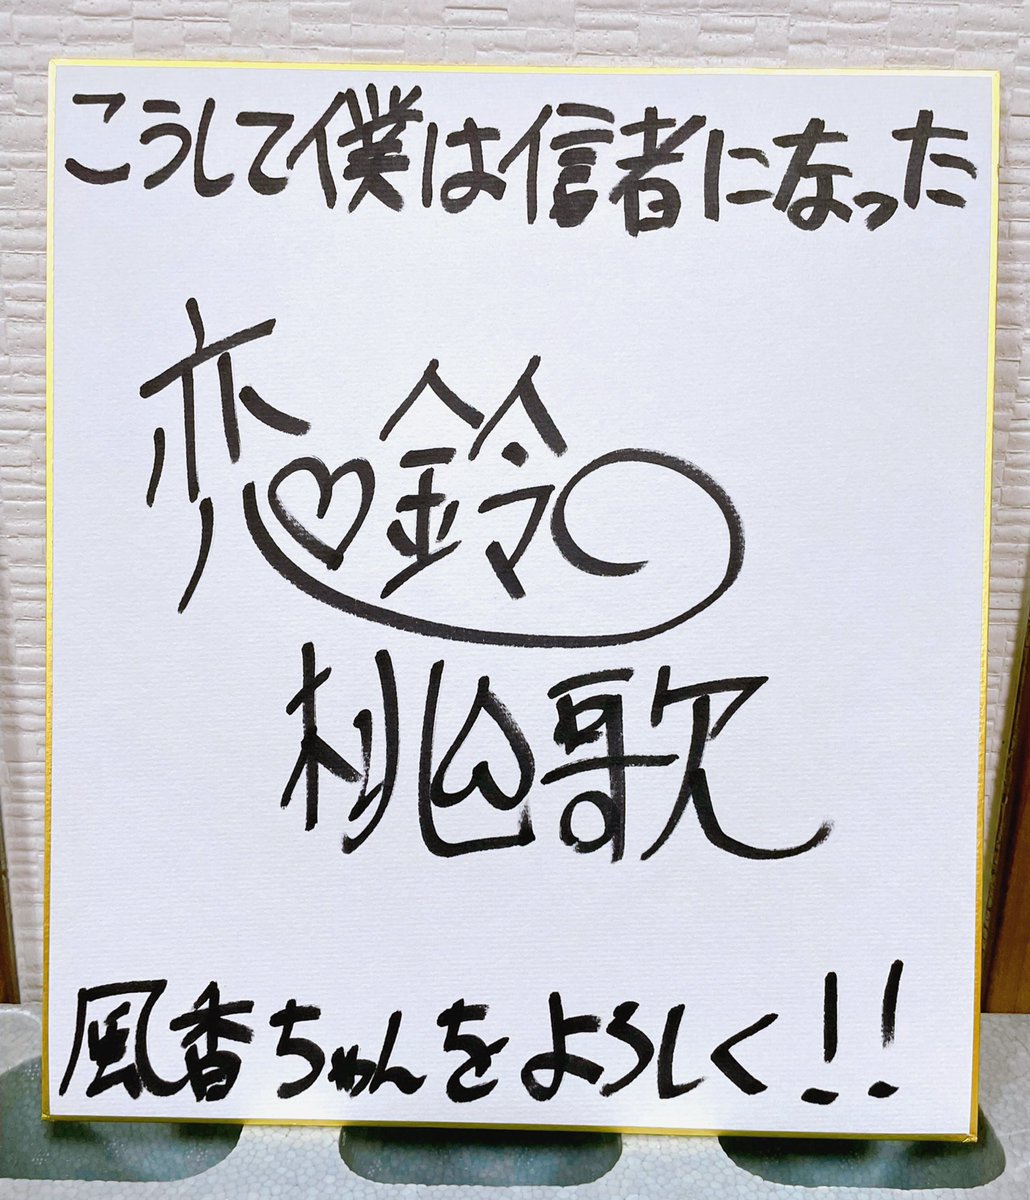 こうして僕は信者になった
恋鈴
桃歌
風香ちゃんをよろしく!!